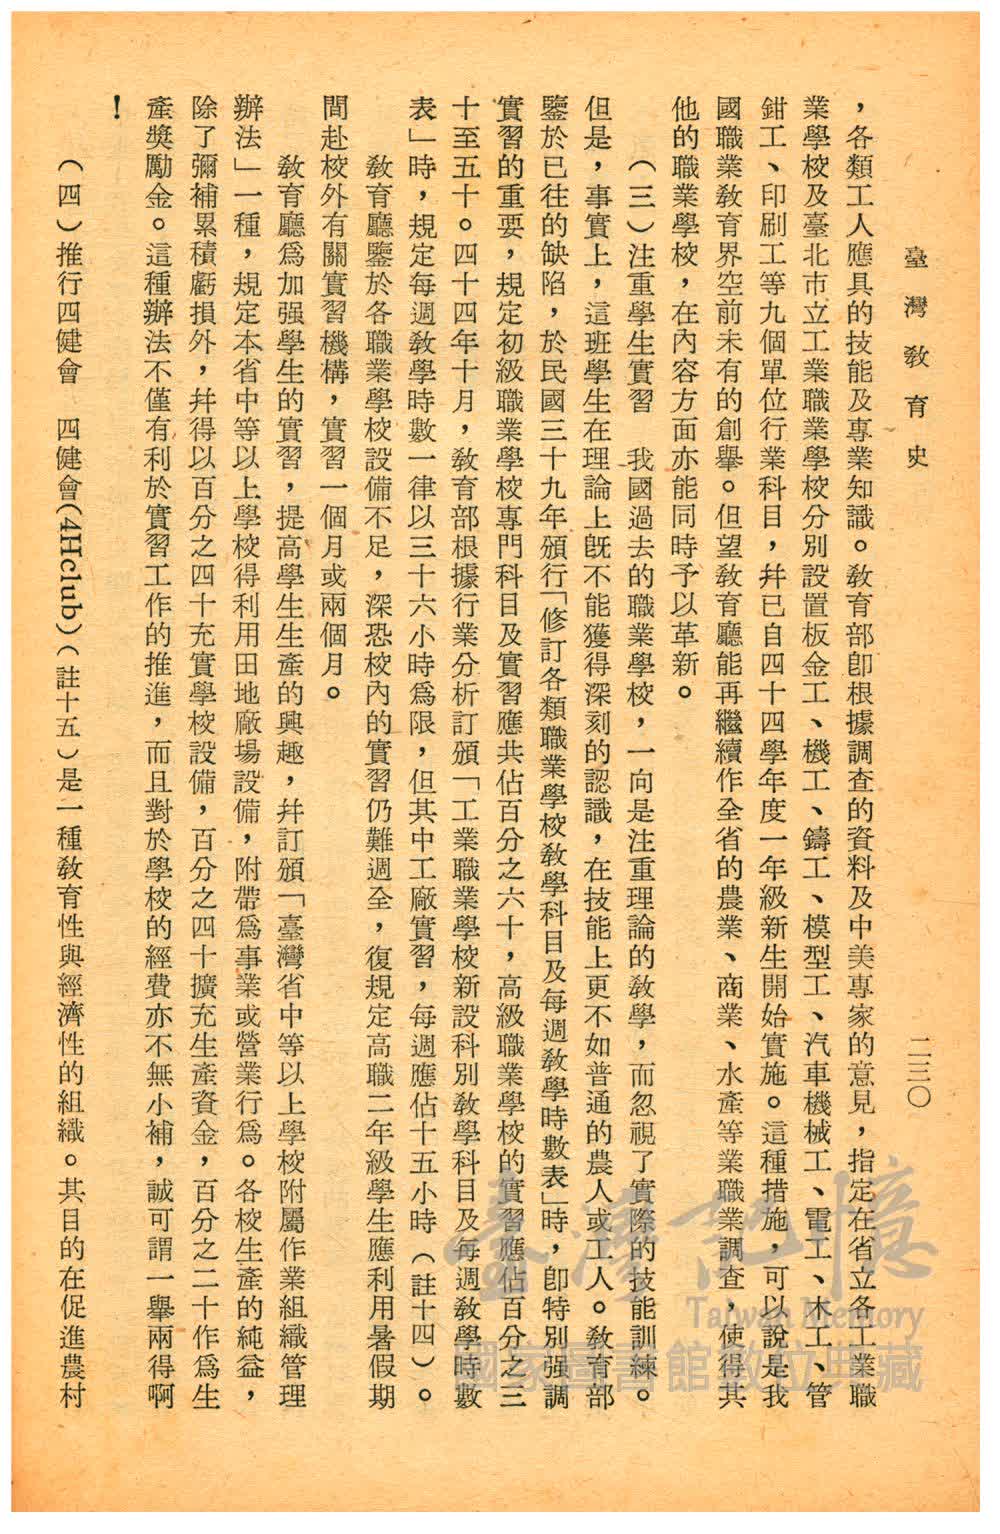 臺灣教育史
二三〇
，各類工人應具的技能及專業知識。教育部卽根據調查的資料及中美專家的意見，指定在省立各工業職
業學校及臺北市立工業職業學校分別設置板金工、機工、鑄工、模型工、汽車機械工、電工、木工、管
鉗工、印刷工等九個單位行業科目，幷已自四十四學年度一年級新生開始實施。這種措施，可以說是我
國職業教育界空前未有的創舉。但望教育廳能再繼續作全省的農業、商業、水產等業職業調查，使得其
他的職業學校，在內容方面亦能同時予以革新。
（三）注重學生實習　我國過去的職業學校，一向是注重理論的教學，而忽視了實際的技能訓練。
但是，事實上，這班學生在理論上旣不能獲得深刻的認識，在技能上更不如普通的農人或工人。教育部
鑒於已往的缺陷，於民國三十九年頒行「修訂各類職業學校教學科目及每週教學時數表」時，卽特別强調
實習的重要，規定初級職業學校專門科目及實習應共佔百分之六十，高級職業學校的實習應佔百分之三
十至五十。四十四年十月，教育部根據行業分析訂頒「工業職業學校新設科別教學科目及每週教學時數
表」時，規定每週教學時數一律以三十六小時爲限，但其中工廠實習，每週應佔十五小時（註十四）。
教育廳鑒於各職業學校設備不足，深恐校內的實習仍難週全，復規定高職二年級學生應利用暑假期
間赴校外有關實習機構，實習一個月或兩個月。
教育廳爲加强學生的實習，提高學生生產的興趣，幷訂頒「臺灣省中等以上學校附屬作業組織管理
辦法」一種，規定本省中等以上學校得利用田地廠場設備，附帶爲事業或營業行爲。各校生產的純益，
除了彌補累積虧損外，幷得以百分之四十充實學校設備，百分之四十擴充生產資金，百分之二十作爲生
產獎勵金。這種辦法不僅有利於實習工作的推進，而且對於學校的經費亦不無小補，誠可謂一舉兩得啊
！
（四）推行四健會　四健會(4Hclub)（註十五）是一種教育性與經濟性的組織。其目的在促進農村
臺灣記憶
Taiwan Memory
國家圖書館數位典藏